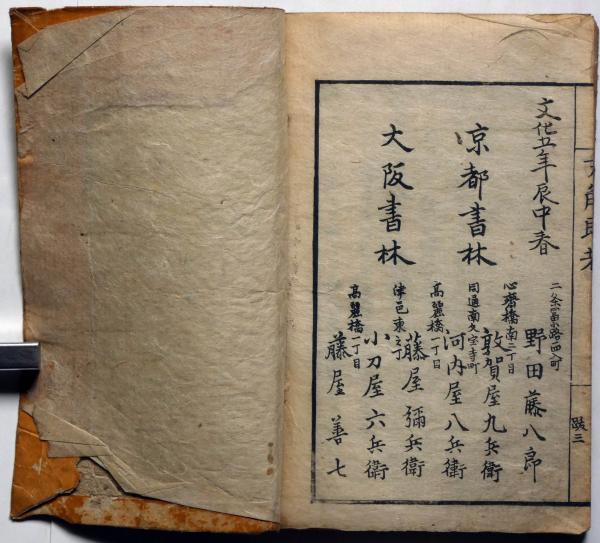 文化五年辰中春
京都書林
二条富小路西入町
野田藤八郎
大阪書林
心齋橋南二丁目
敦賀屋九兵衛
同通南久宝寺町
河内屋八兵衛
高麗橋一丁目
藤屋彌兵衛
小刀屋六兵衛
高麗橋一丁目
藤屋善七
跋三